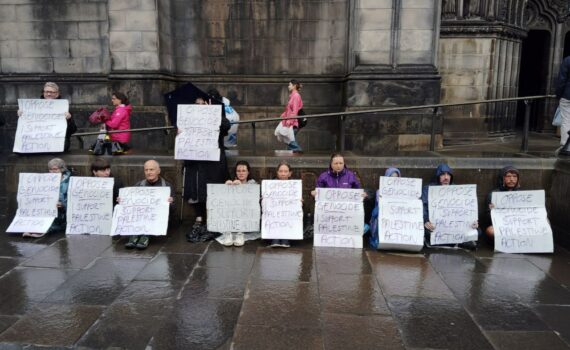 I OPPOSE
GENOCIDE
I SUPPORT
PALESTINE
ACTION
I OPPOSE
GENOCIDE
I SUPPORT
PALESTINE
ACTION
I OPPOSE
GENOCIDE
I SUPPORT
PALESTINE
ACTION
I OPPOSE
GENOCIDE
I SUPPORT
PALESTINE
ACTION
I OPPOSE
GENOCIDE
I SUPPORT
PALESTINE
ACTION
I OPPOSE
GENOCIDE
I SUPPORT
PALESTINE
ACTION
I OPPOSE
GENOCIDE
I SUPPORT
PALESTINE
ACTION
I OPPOSE
GENOCIDE
I SUPPORT
PALESTINE
ACTION
I OPPOSE
GENOCIDE
I SUPPORT
PALESTINE
ACTION
I OPPOSE
GENOCIDE
I SUPPORT
PALESTINE
ACTION